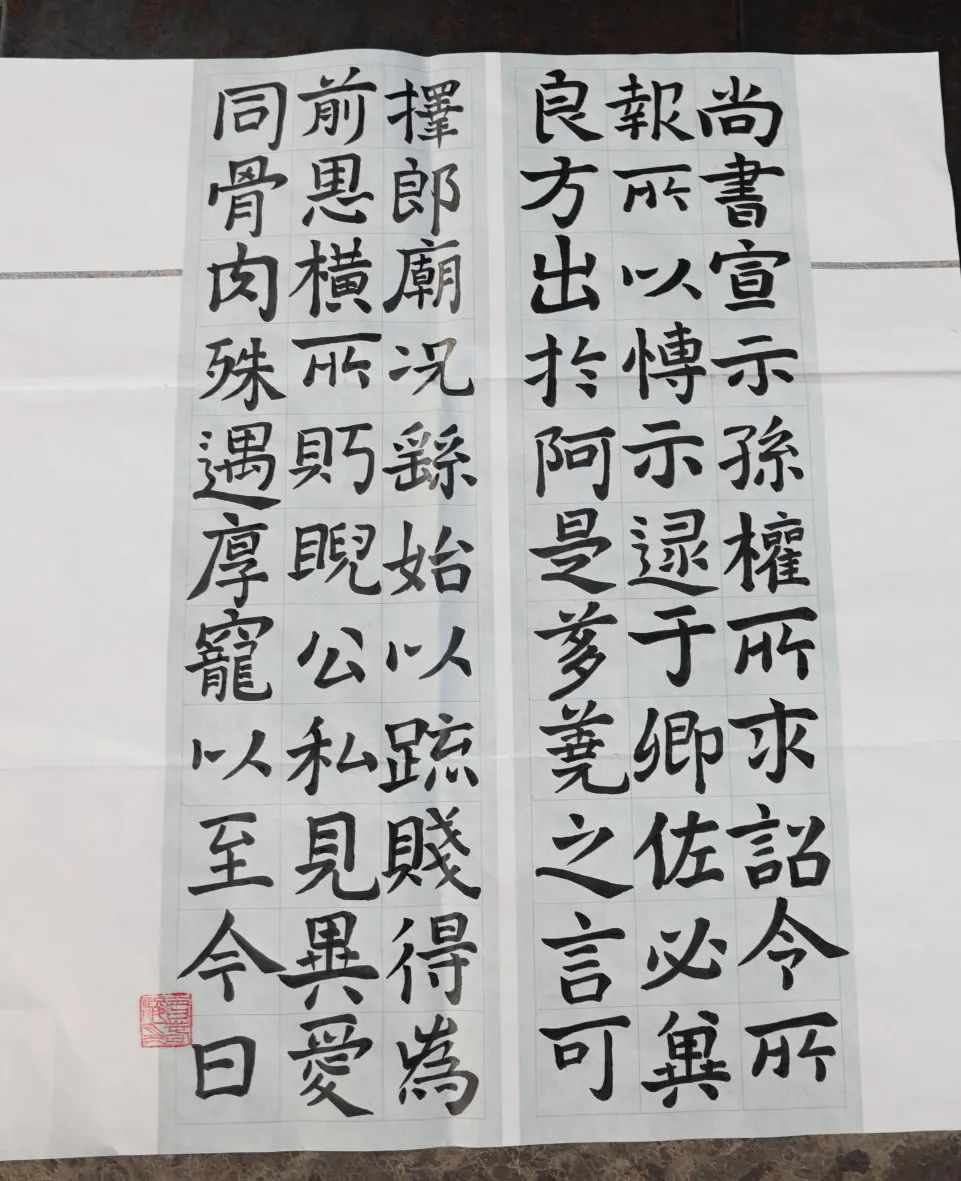 尚書宣示孫權所求詔令所
報所以愽示逯于卿佐必兾
良方出於阿是蒭蕘之言可
擇郎廟况繇始以疏賤得為
前恩橫所眄睨公私見異愛
同骨肉殊遇厚寵以至今日